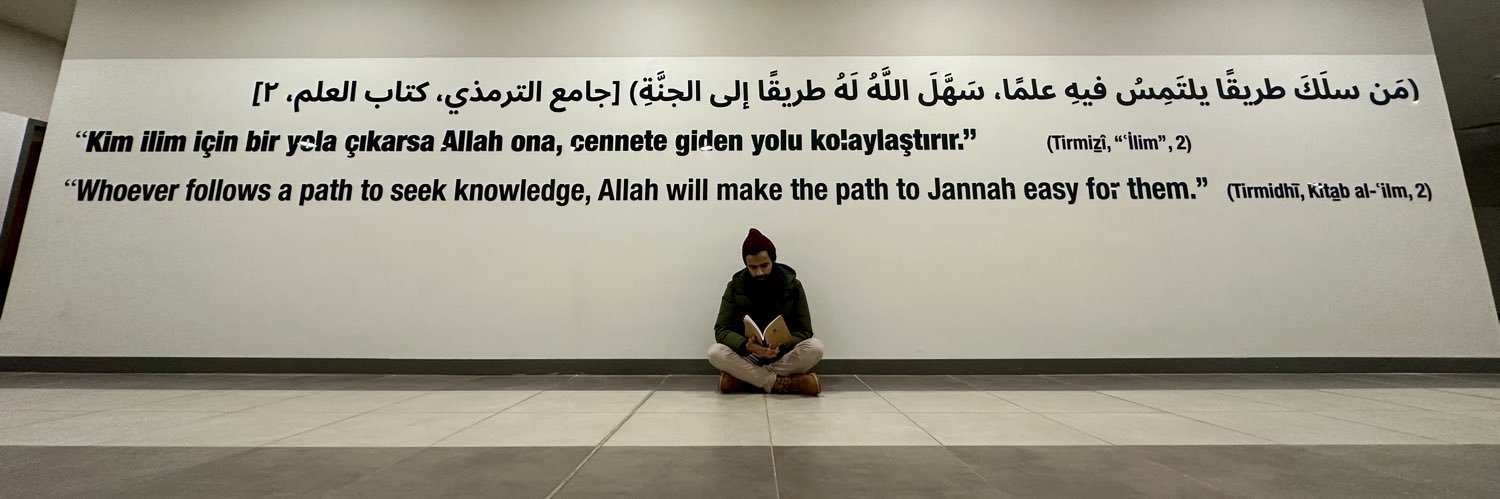 (مَن سلَكَ طريقًا يلتَمِسُ فيهِ علمًا، سَهَّلَ اللَّهُ لَهُ طريقًا إلى الجنَّةِ) [جامع الترمذي، كتاب العلم، ٢]
“Kim ilim için bir yola çıkarsa Allah ona, cennete giden yolu kolaylaştırır.” (Tirmizî, “‘İlim”, 2)
“Whoever follows a path to seek knowledge, Allah will make the path to Jannah easy for them.” (Tirmidhī, Kitab al-‘ilm, 2)